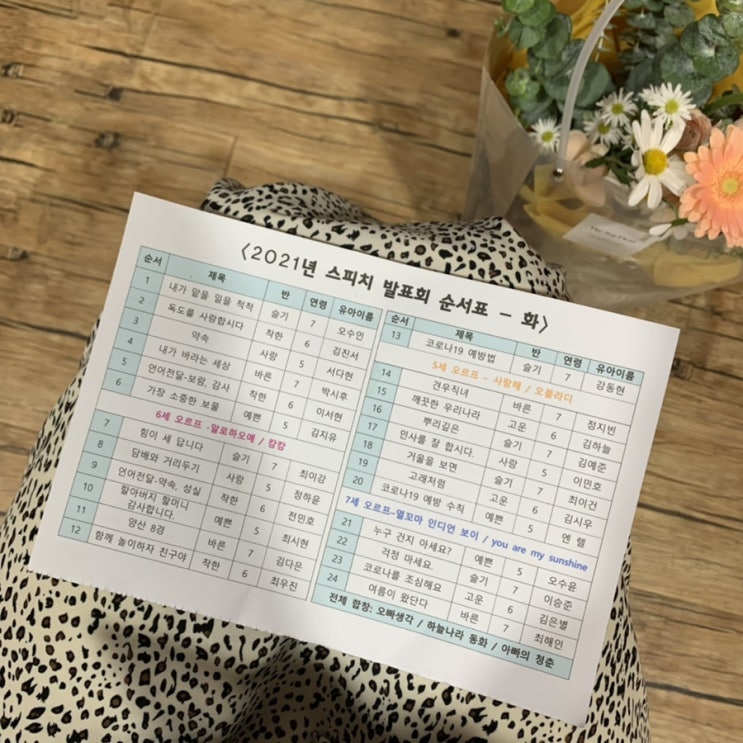 <2021년 스피치 발표회 순서표 - 화>
순서 제목 반 연령 유아이름
1 내가 맡을 일을 척척 슬기 7 오수민
2 독도를 사랑합시다 착한 6 김진서
3 약속 사랑 5 서다현
4 내가 바라는 세상 바른 7 박시후
5 언어전달-보람, 감사 착한 6 이서현
6 가장 소중한 보물 예쁜 5 김지유
6세 오르프 -알로하오에 / 캉캉
7 힘이 세 답니다 슬기 7 최이강
8 담배와 거리두기 사랑 5 정하윤
9 언어전달-약속, 성실 착한 6 전민호
10 할아버지 할머니
감사합니다. 예쁜 5 최시현
11 양산 8경 바른 7 김다은
12 함께 놀이하자 친구야 착한 6 최우진
순서 제목 반 연령 유아이름
13 코로나19 예방법 슬기 7 김동현
5세 오르프 - 사랑해 / 오블라디
14 견우직녀 바른 7 정지빈
15 깨끗한 우리나라 고운 6 김하늘
16 뿌리깊은 슬기 7 김예준
17 인사를 잘 합시다. 사랑 5 이민호
18 거울을 보면 슬기 7 최이건
19 고래처럼 고운 6 김시우
20 코로나19 예방 수칙 예쁜 5 엔 렐
7세 오르프-열꼬마 인디언 보이 / you are my sunshine
21 누구 건지 아세요? 예쁜 5 오수윤
22 걱정 마세요. 슬기 7 이승준
23 코로나를 조심해요 고운 6 김은별
24 여름이 왔단다 바른 7 최해인
전체 합창: 오빠생각 / 하늘나라 동화 / 아빠의 청춘